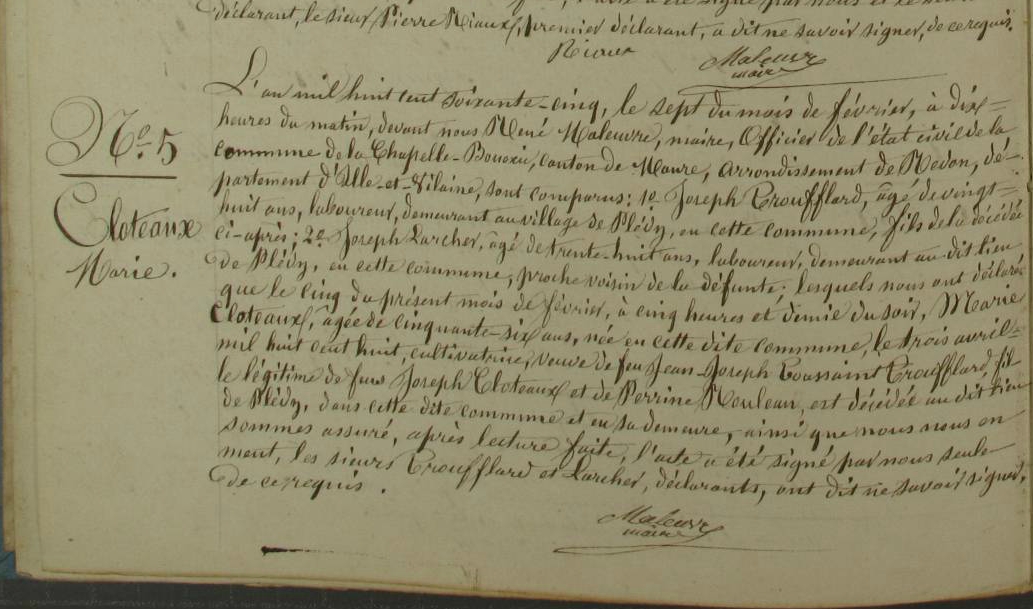 déclarant, le sieur Pierre Riaux, premier déclarant, a dit ne savoir signer, de ce requis.
Riaux Maleuvre
maire
N.º 5
Cloteaux
Marie.
L'an mil huit cent soixante-cinq, le sept du mois de février, à dix-
heures du matin, devant nous René Maleuvre, maire, Officier de l'état civil de la
commune de la Chapelle-Bouexic, canton de Maure, arrondissement de Redon, dé-
partement d'Ille-et-Vilaine, sont comparus: 1º Joseph Troufflard, âgé de vingt-
huit ans, laboureur, demeurant au village de Plédy, en cette commune, fils de la décédée
ci-après; 2º Joseph Larcher, âgé de trente-huit ans, laboureur, demeurant au dit lieu
de Plédy, en cette commune, proche voisin de la défunte; lesquels nous ont déclaré
que le cinq du présent mois de février, à cinq heures et demie du soir, Marie
Cloteaux, âgée de cinquante-six ans, née en cette dite commune, le trois avril
mil huit cent huit, cultivatrice, veuve de feu Jean-Joseph Toussaint Troufflard, fil-
le légitime de feus Joseph Cloteaux et de Perrine Rouleau, est décédée au dit lieu
de Plédy, dans cette dite commune et en sa demeure, ainsi que nous nous en
sommes assuré, après lecture faite, l'acte a été signé par nous seule-
ment, les sieurs Troufflard et Larcher, déclarants, ont dit ne savoir signer,
de ce requis.
Maleuvre
maire